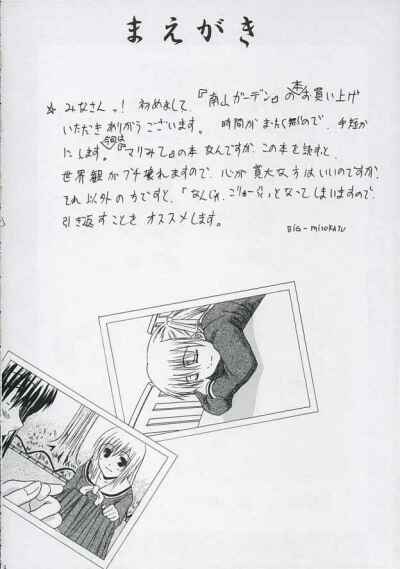 まえがき
☆みなさんっ! 初めまして、『南山ガーデン』の本お買い上げ
いただきありがうございます。 時間がまったく無いので、手短か
にします。今回は『マリみて』の本なんですが、この本を読むと、
世界観がブチ壊れますので、心が寛大な方はいいのですが、
それ以外の方ですと、「なんじゃ、こりゃーッ!」となってしまいますので、
引き返すことをオススメします。
BIG-MISOKATU